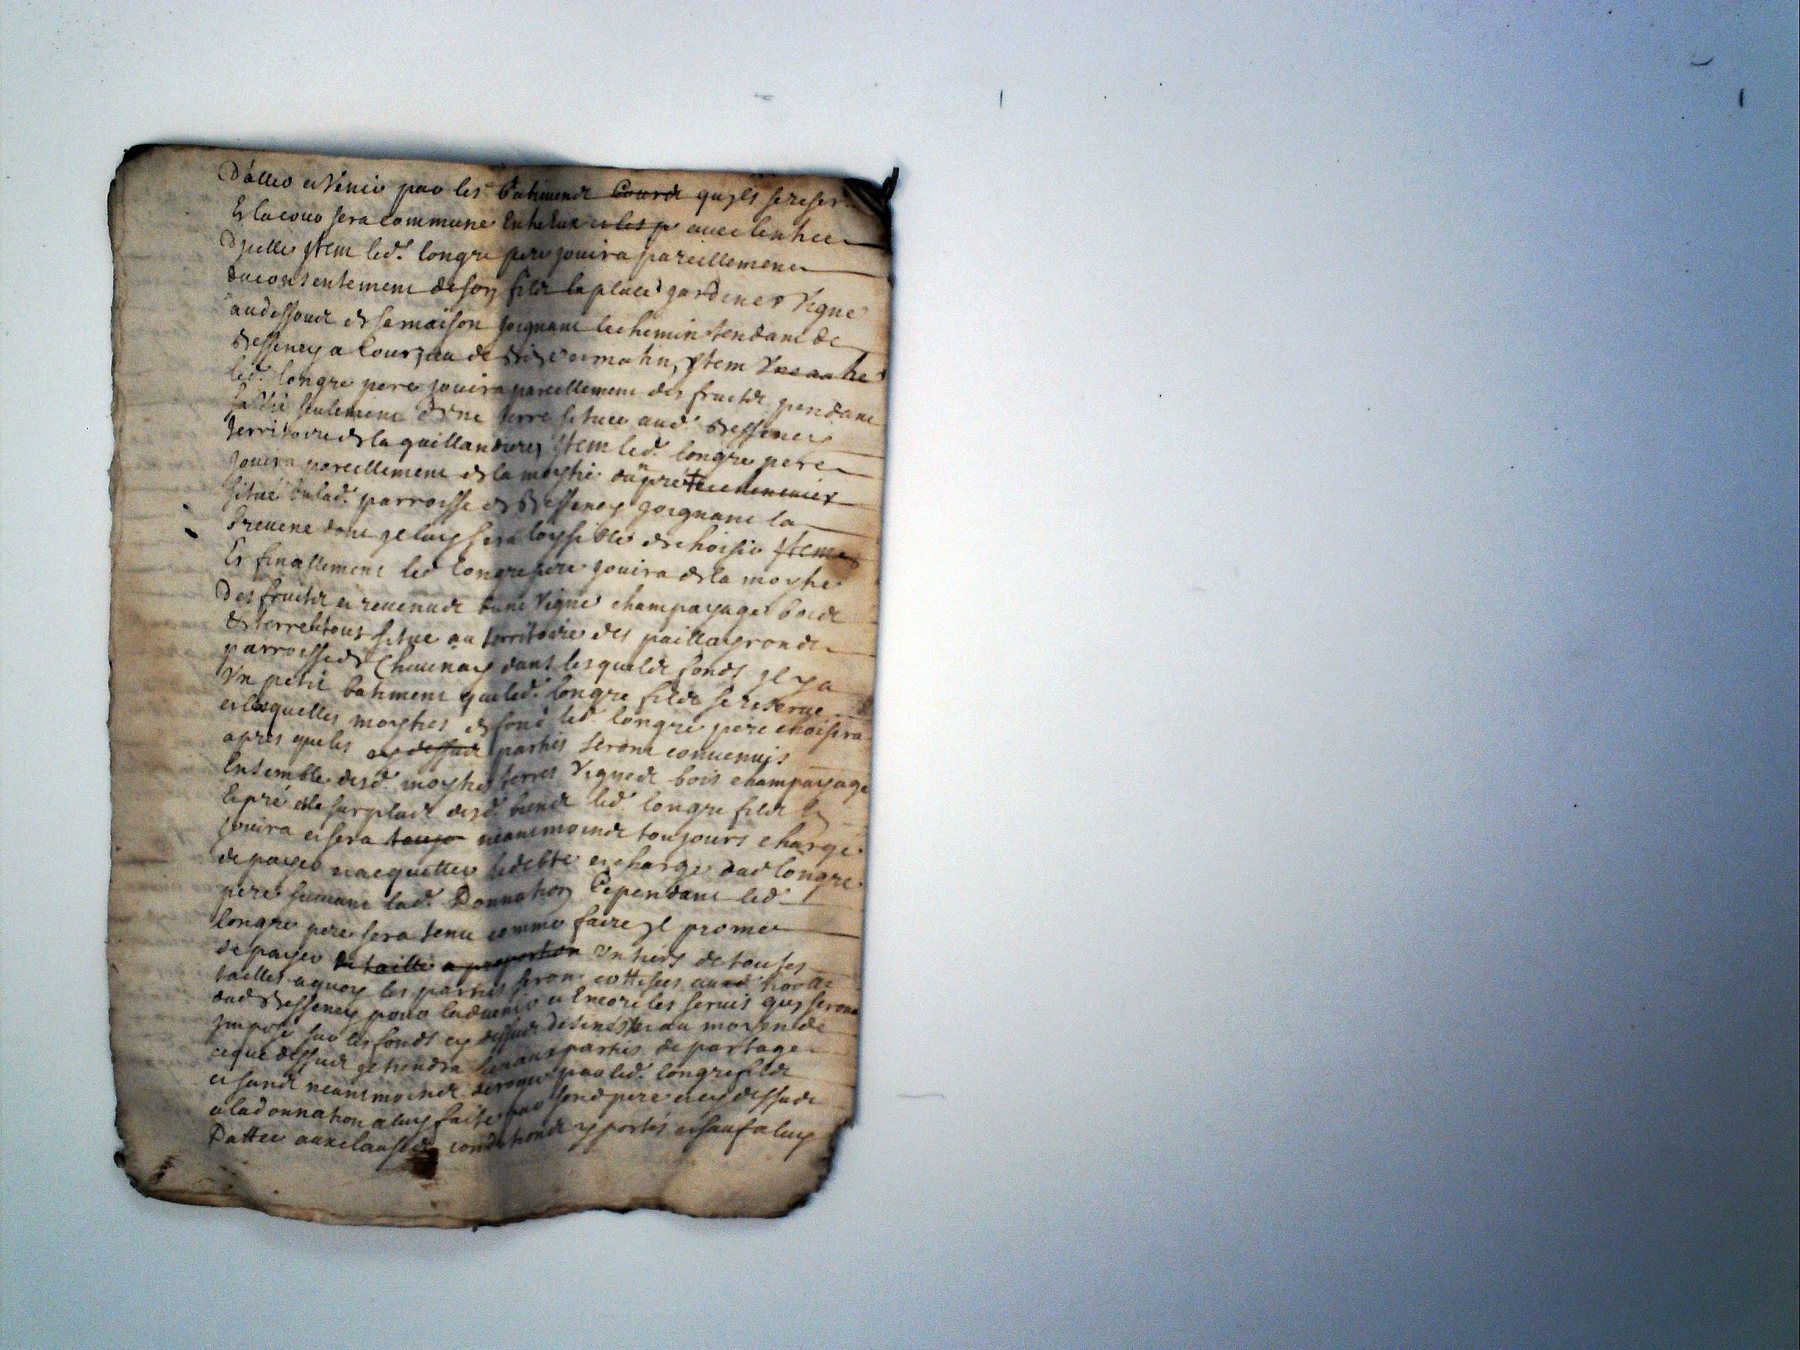 Daller et Venir par les batiments Courd quils se reser
Et la cour sera commune Entre Eux et les p avec lentree
Dycelle Jtem led. longre pere jouira pareillement
du consentement de son fils la place jardin et Vigne
au dessoud de sa maison joignant le chemin tendant de
Bessenay a Courzieu de matin, Jtem
led. longre pere jouira pareillement des fruitz pendant
sa vie seulement dune terre situee aud. Bessenay
Territoire de la guillandiere Jtem led. longre pere
jouira pareillement de la moytié dun pré
situé en lad. parroisse de Bessenay joignant la
brevene dont jl luy sera loysible de choisir Jtem
Et finallement led longre pere jouira de la moytie
Des fruitz et revenud dune Vigne champayage boid
et terre le tout situé au territoire des paillaysrond
parroisse de Chevinay dans lesqueld fonds jl y a
Vn petit batiment que led. longre fild se reserve
et lesquelles moyties de fond led. longre pere choisira
apres que les partiés seront convenuis
Ensemble desd. moytié terres Vigned bois champayage
le pré et le surplud desd. biend led. longre fild
jouira et sera toujo neantmoind toujours chargé
de payer et acquitter les debte et charge dud longre
pere suivant lad. Donnation Cependant led
longre pere sera tenu comme faire jl promet
de payer de taille a proportion vn tiers de toutes
tailles a quoy les partiés seront cottisees aux roolle
dud Bessenay pour ladvenir et Encore les servis quy seront
Jmposé sur les fonds cy dessud designés et au moyen de
ce que dessud jl tiendra lieu aux partiés de partage
et sand neantmoind deroger par led. longre fild
a la donnation a luy faite par sond pere et cy dessud
Dattee aux claused conditiond y portés et sauf a luy